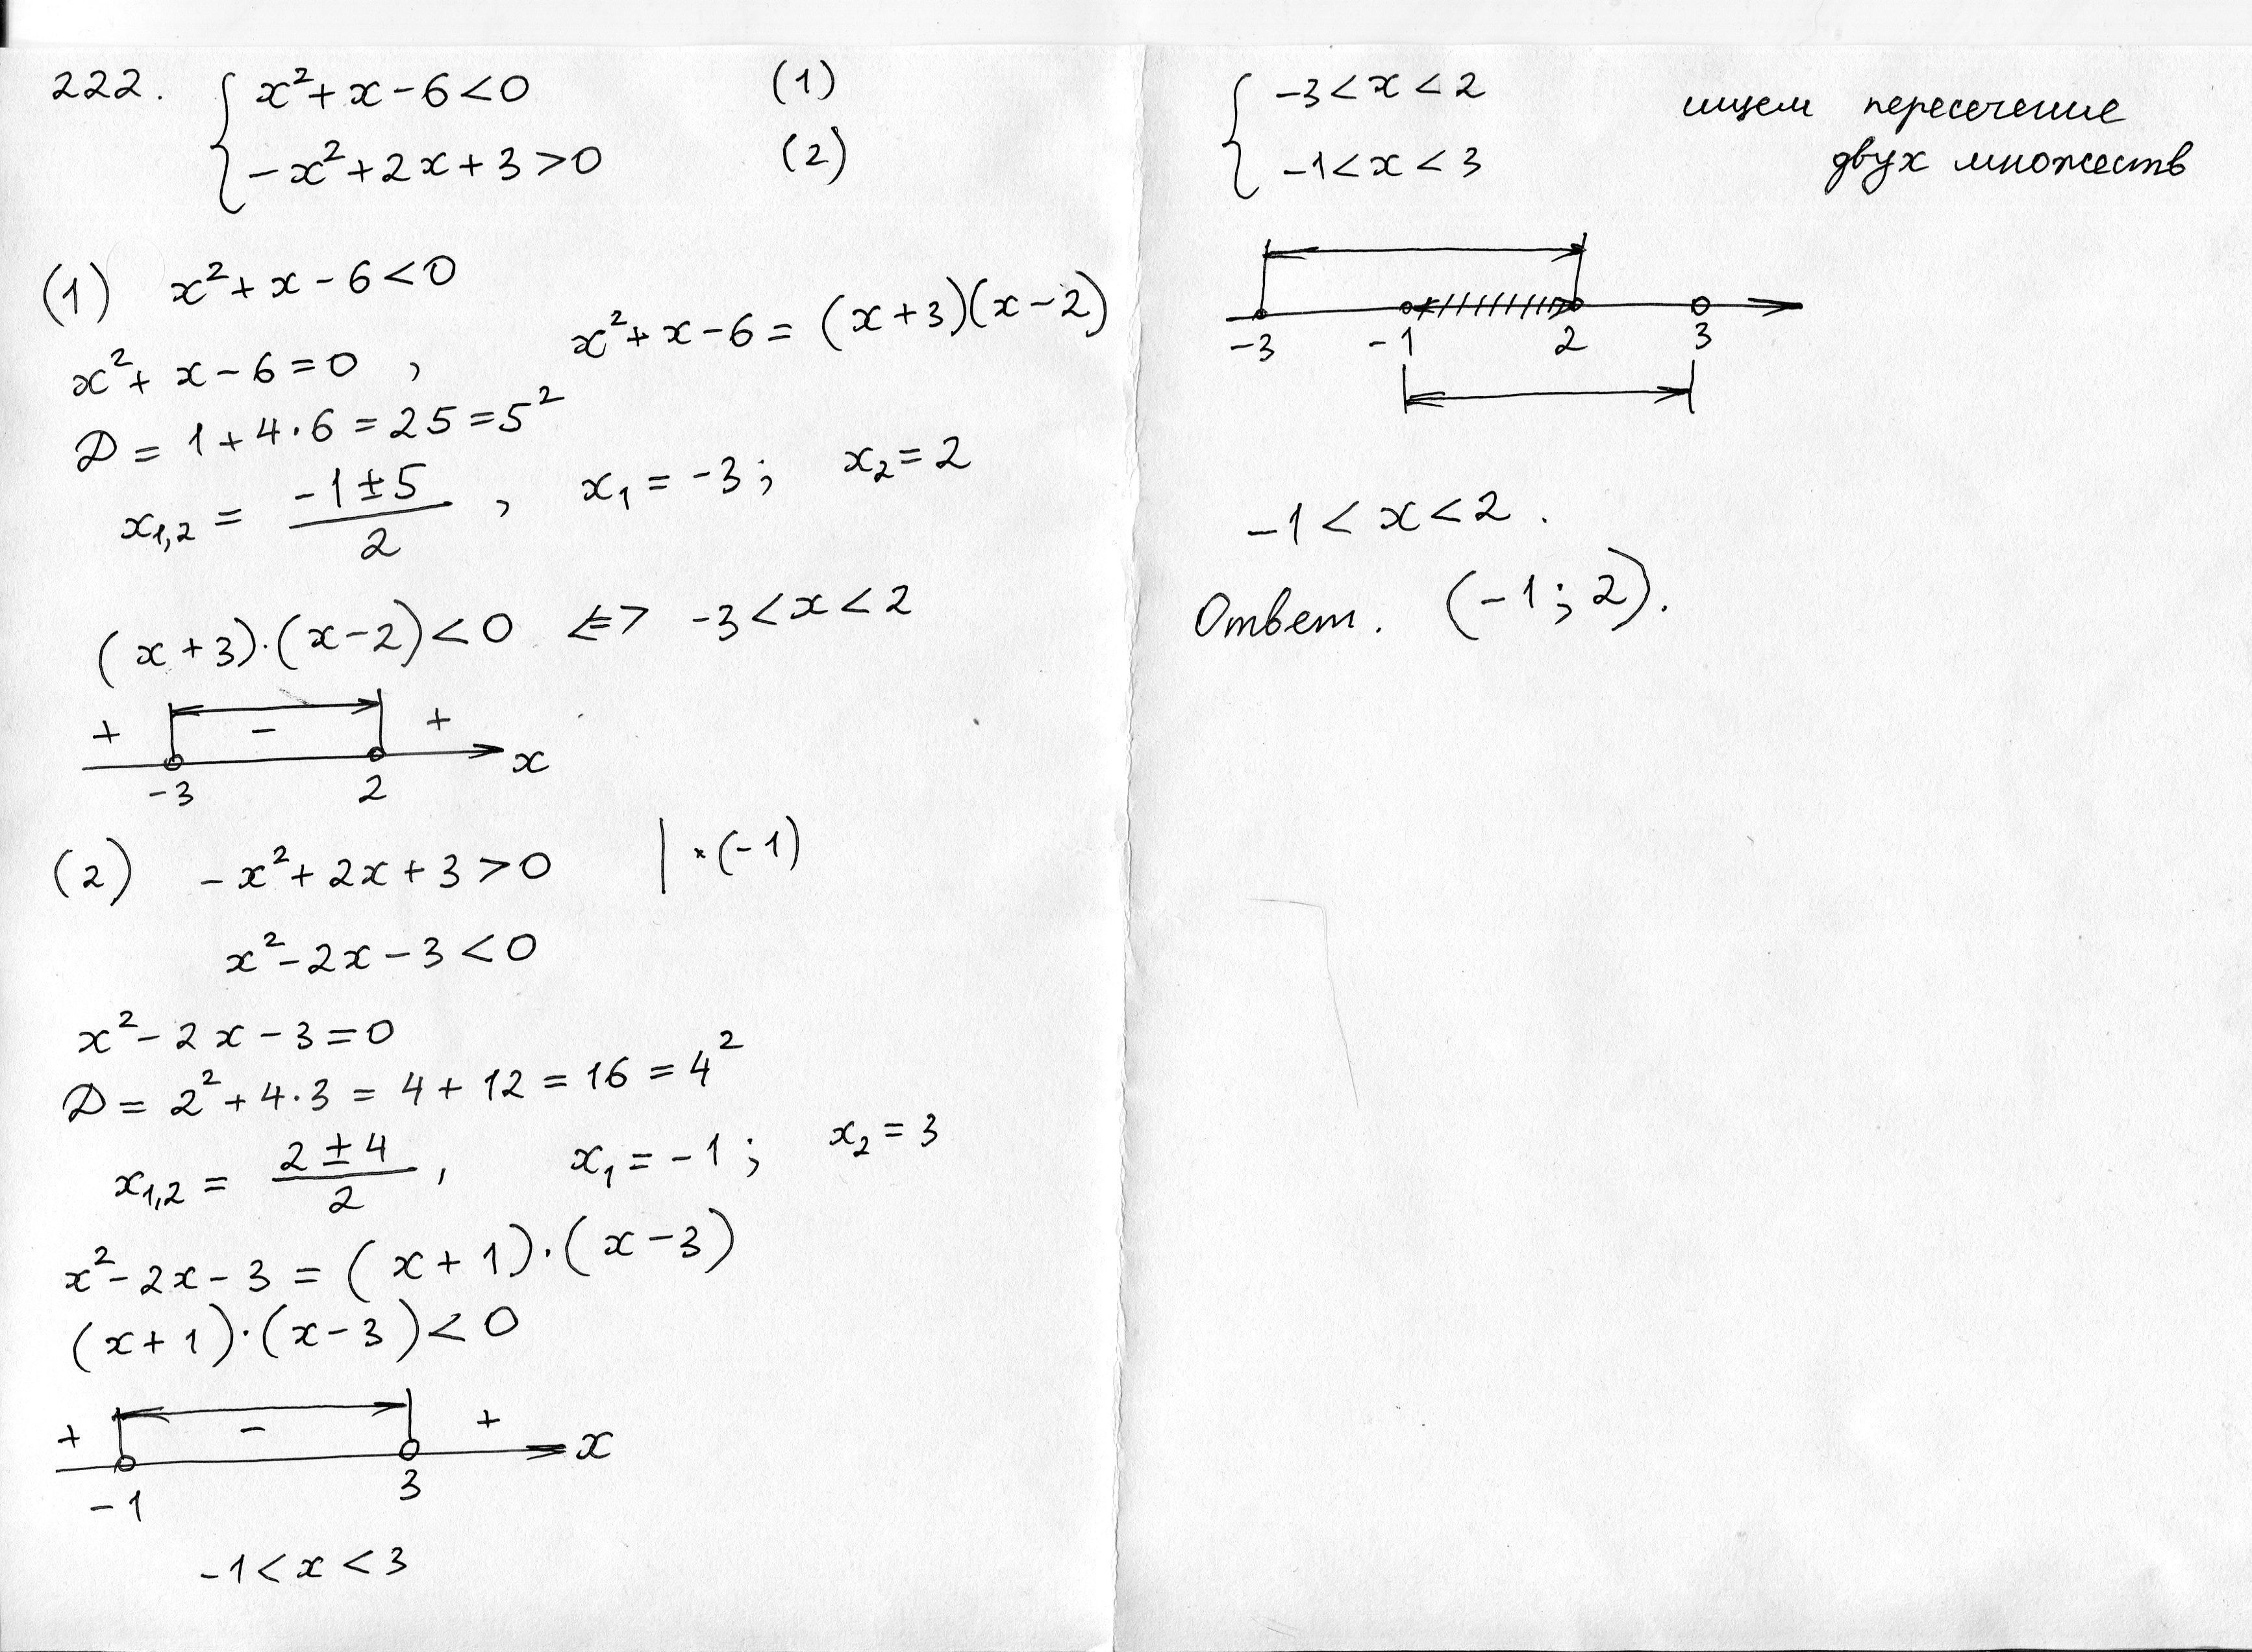 222. { x²+x-6<0 (1)
-x²+2x+3>0 (2)
(1) x²+x-6<0
x²+x-6=0 , x²+x-6=(x+3)(x-2)
D=1+4·6=25=5²
x₁,₂ = (-1±5)/2 , x₁=-3; x₂=2
(x+3)·(x-2)<0 <=> -3<x<2
+ - +
-3 2 x
(2) -x²+2x+3>0 | ·(-1)
x²-2x-3<0
x²-2x-3=0
D=2²+4·3=4+12=16=4²
x₁,₂ = (2±4)/2 , x₁=-1; x₂=3
x²-2x-3=(x+1)·(x-3)
(x+1)·(x-3)<0
+ - +
-1 3 x
-1<x<3
{ -3<x<2 ищем пересечение
-1<x<3 двух множеств
-3 -1 2 3
-1<x<2.
Ответ. (-1; 2).